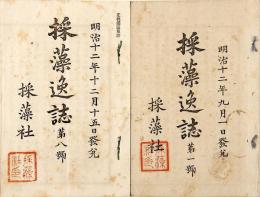 明治十二年九月一日發兌
採藻逸誌 第一號
採藻社
明治十二年十二月十五日發兌
採藻逸誌 第八號
採藻社